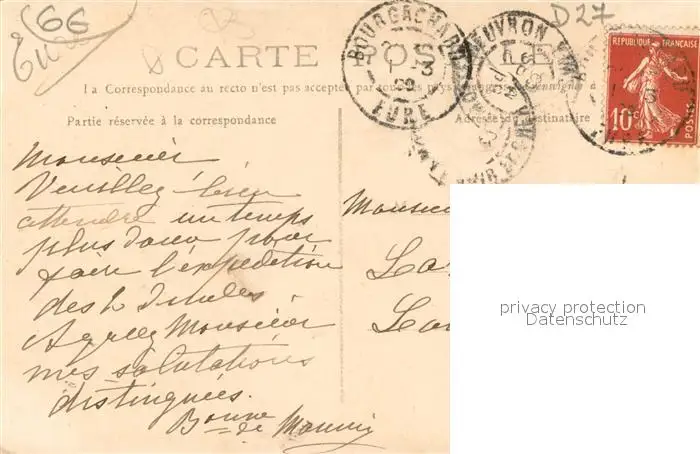 66
Eure
D27
CARTE POSTALE
La Correspondance au recto n'est pas acceptée par tous les pays
Partie réservée à la correspondance
Adresse du Destinataire
BOURGACHARD
EURE
REPUBLIQUE FRANÇAISE
10c
POSTES
Monsieur
Veuillez bien
attendre un temps
plus doux pour
faire l'expédition
des
Agréez Monsieur
mes salutations
distinguées.
Bonne
de
Monsieur
privacy protection
Datenschutz